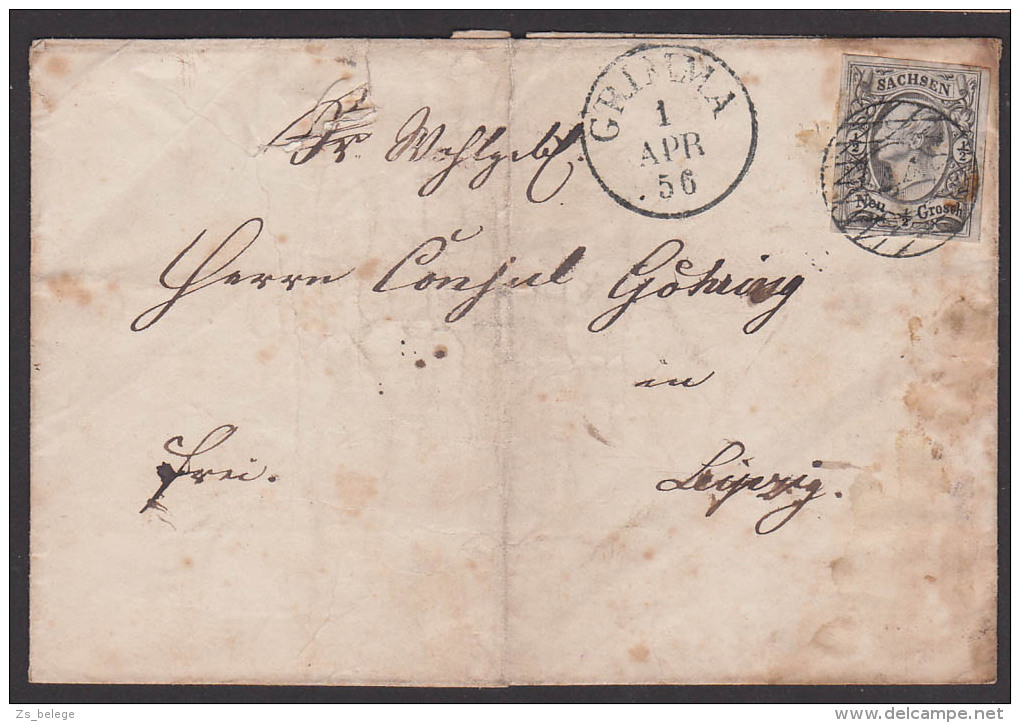 GRIMMA
1
APR
56
SACHSEN
½ ½
Neu ½ Grosch
Sr. Wohlgeb.
Herrn Consul Göhring
in
frei. Leipzig.
Zs_belege
delcampe.net